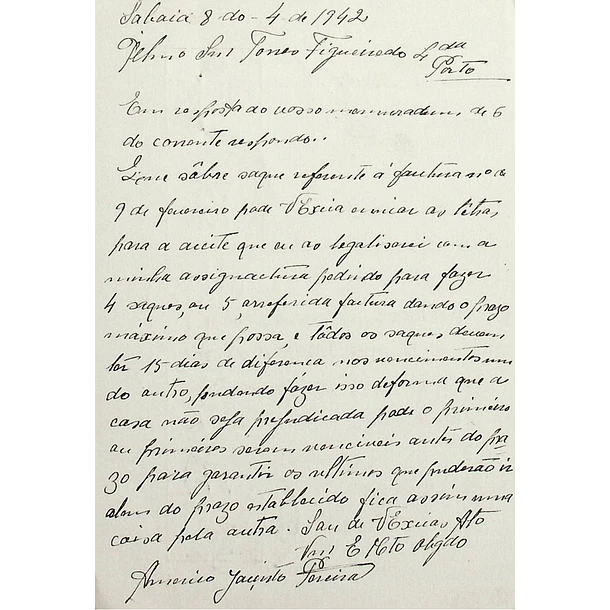 Sabaia 8 do - 4 de 1942
Snr Torres Figueiredo Lda
Porto
Em resposta do vosso memuradum de 6
do corrente respondo..
sôbre saque referente á fautura nº de
9 de fevereiro pode VExcia enviar as letras
para a aceite que eu as legalisarei com a
minha assignactura pedindo para fazer
4 saques, ou 5, arreferida fautura dando o prazo
máximo que possa, e tôdos os saques devem
têr 15 dias de diferença nos vencimentos um
do outro, podendo fazer isso deforma que a
casa não seja prejudicada pode o primeiro
ou primeiros serem venciveis antes do pra
zo para garantir os ultimos que poderão ir
alem do prazo establecido fica assim uma
coisa pela outra. Sou de VExcias Ato
Vnr E Mto Obgdo
Americo Jacinto Pereira